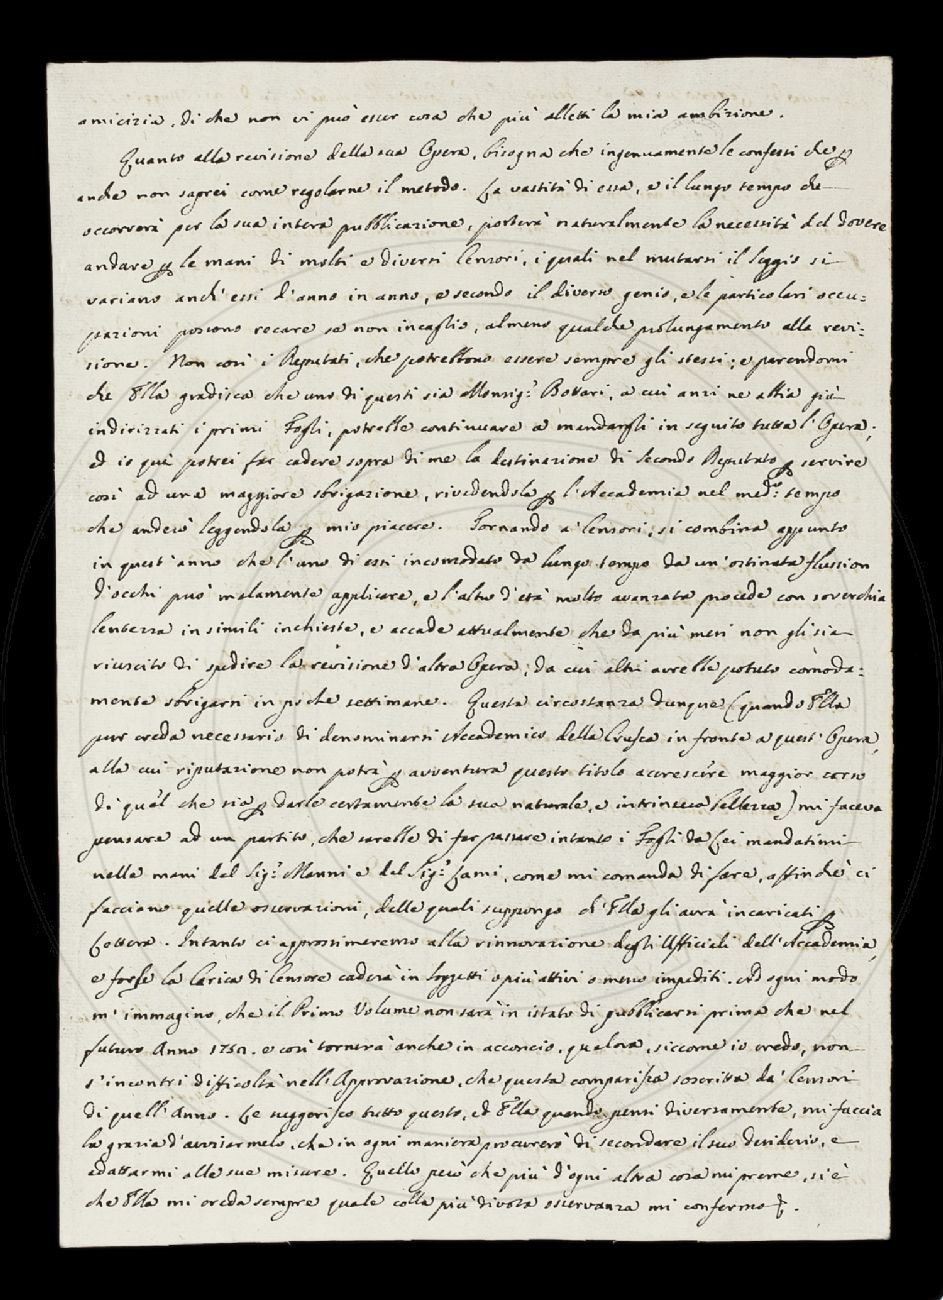 amicizia, di che non vi può esser cosa che più alletti la mia ambizione.
Quanto alla revisione della sua Opera, bisogna che ingenuamente le confessi che
anche non saprei come regolarne il metodo. La vastità di essa, e il lungo tempo che
occorrerà per la sua intera pubblicazione, porterà naturalmente la necessità del dovere
andare p le mani di molti e diversi Censori, i quali nel mutarsi il Seggio si
variano anch' essi d'anno in anno, e secondo il diverso genio, e le particolari occu:
pazioni possono recare se non incaglio, almeno qualche prolungamento alla revi:
sione. Non così i Deputati, che potrebbono essere sempre gli stessi; e parendomi
che Ella gradisca che uno di questi sia Monsig.r Bottari, a cui anzi ne abbia già
indirizzati i primi Fogli, potrebbe continuare a mandargli in seguito tutta l'Opera;
ed io quì potrei far cadere sopra di me la destinazione di secondo Deputato p servire
così ad una maggiore sbrigazione, rivedendola p l'Accademia nel med.mo tempo
che anderò leggendola p mio piacere. Tornando a' Censori; si combina appunto
in quest' anno che l'uno di essi incomodato da lungo tempo da un' ostinata flussion
d'occhi può malamente applicare, e l'altro d'età molto avanzata procede con soverchia
lentezza in simili inchieste, e accade attualmente che da più mesi non gli sia
riuscito di spedire la revisione d'altra Opera; da cui altri avrebbe potuto comoda:
mente sbrigarsi in poche settimane. Questa circostanza dunque (quando Ella
pur creda necessario di denominarsi Accademico della Crusca in fronte a quest' Opera,
alla cui riputazione non potrà p avventura questo titolo accrescere maggior corso
di quel che sia p darle certamente la sua naturale, e intrinseca bellezza) mi faceva
pensare ad un partito, che sarebbe di far passare intanto i Fogli da Lei mandatimi
nelle mani del Sig.r Manni e del Sig.r Lami, come mi comanda di fare, affinchè ci
facciano quelle osservazioni, delle quali suppongo ch' Ella gli avrà incaricati p
Lettera. Intanto ci approssimeremo alla rinnovazione degli Uffiziali dell'Accademia,
e forse la Carica di Censore caderà in soggetti o più attivi o meno impediti. Ad ogni modo
m' immagino, che il Primo Volume non sarà in istato di pubblicarsi prima che nel
futuro Anno e così tornerà anche in acconcio, qualora, siccome io credo, non
s'incontri difficoltà nell' Approvazione, che questa comparisca soscritta da' Censori
di quell' Anno. Le suggerisco tutto questo, ed Ella quando pensi diversamente, mi faccia
la grazia d'avvisarmelo, che in ogni maniera procurerò di secondare il suo desiderio, e
adattarmi alle sue misure. Quello però che più d'ogni altra cosa mi preme, si è
che Ella mi creda sempre quale colla più divota osservanza mi confermo